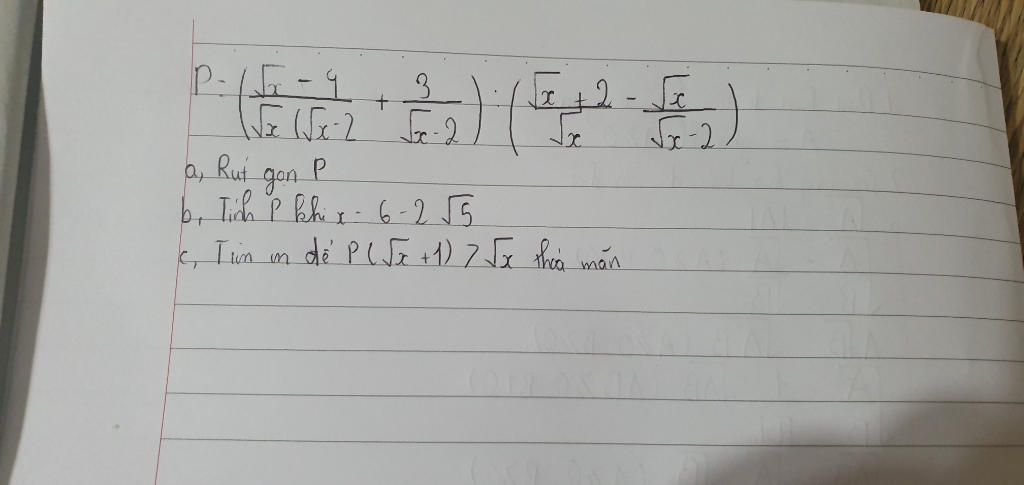 P = (√x - 4 / √x (√x - 2 + 3 / √x - 2) : (√x + 2 / √x - √x / √x - 2)
a, Rut gon P
b, Tính P khi x = 6 - 2√5
c, Tìm m để P(√x + 1) > √x thỏa mãn